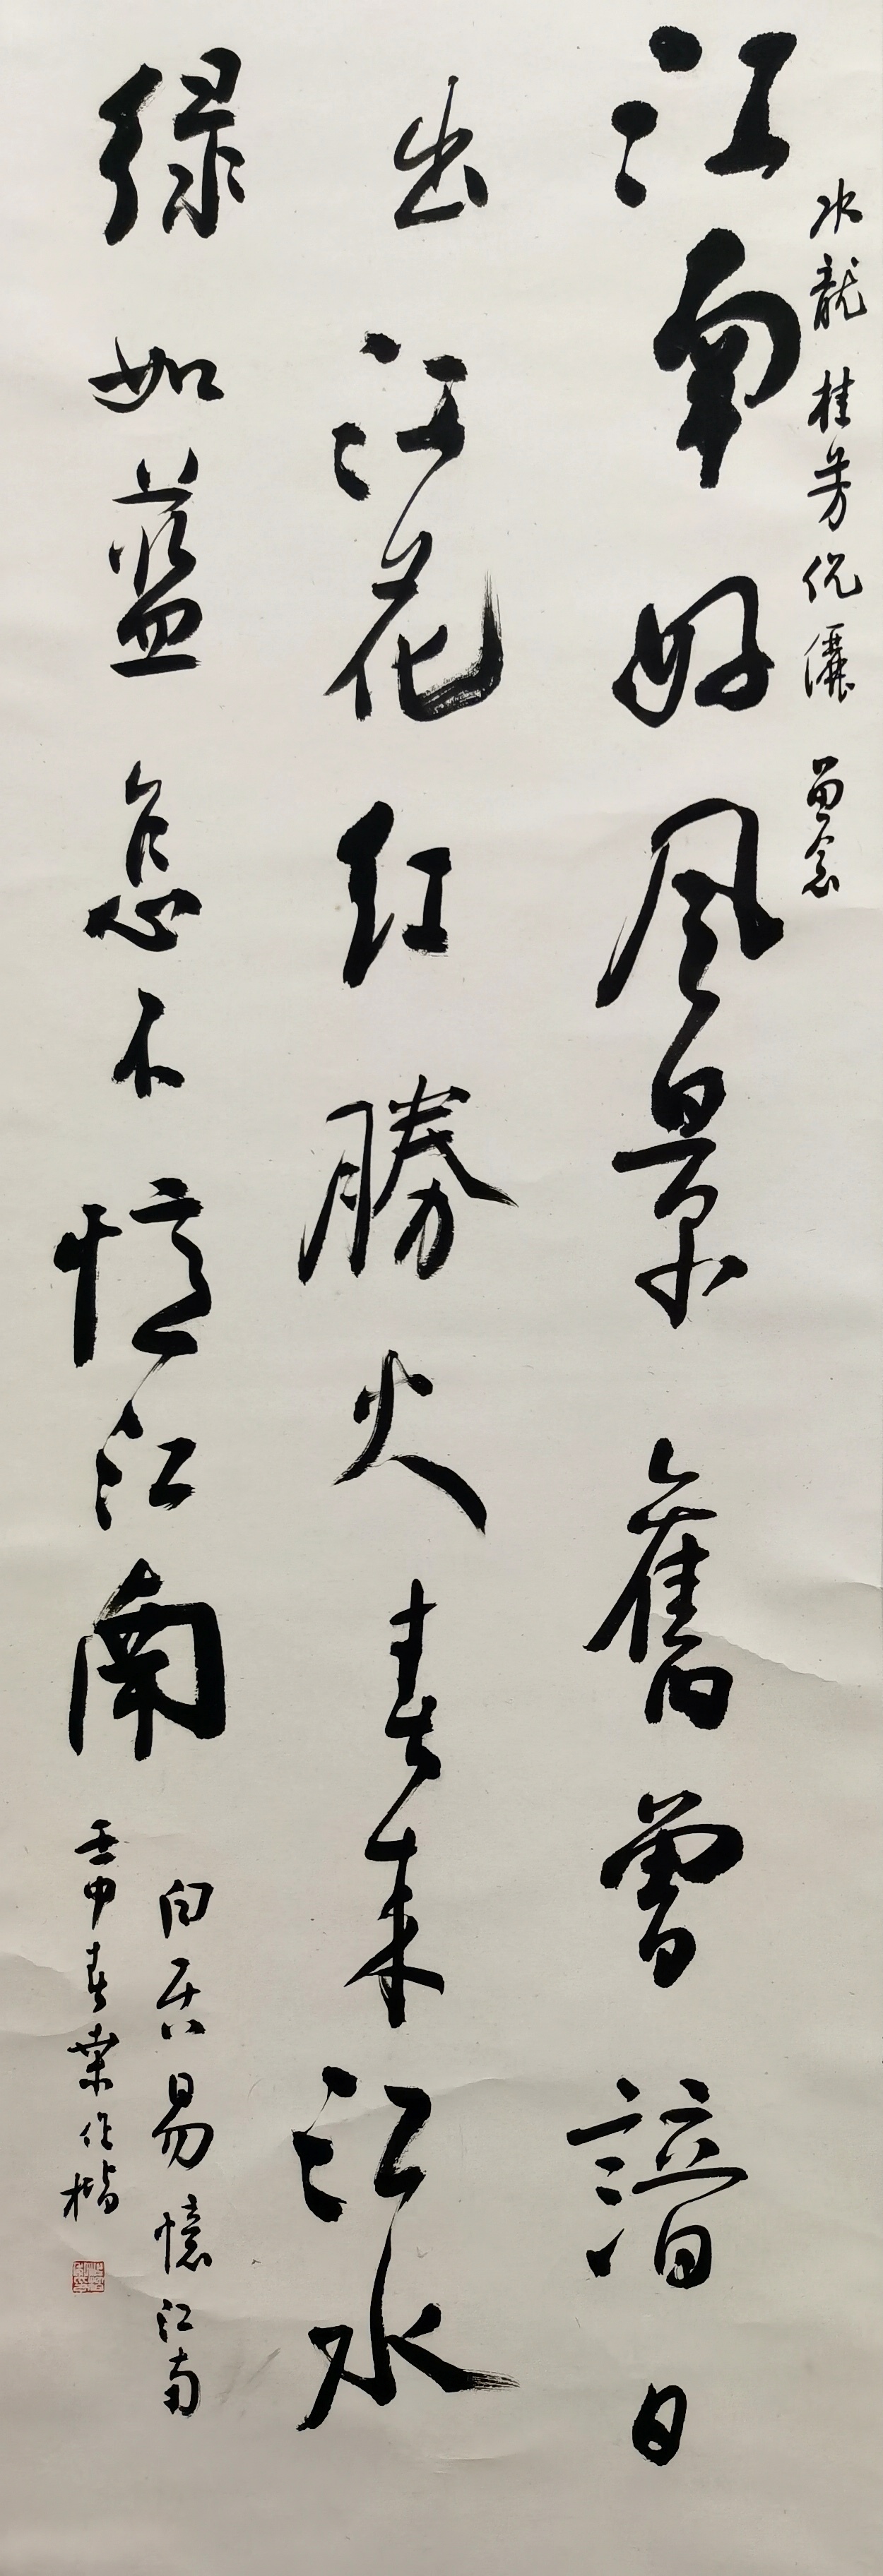 冰龍 桂芳伉儷 留念
江南好風景舊曾諳日
出江花紅勝火春來江水
綠如藍怎不憶江南
白居易憶江南
壬申春葉作楷